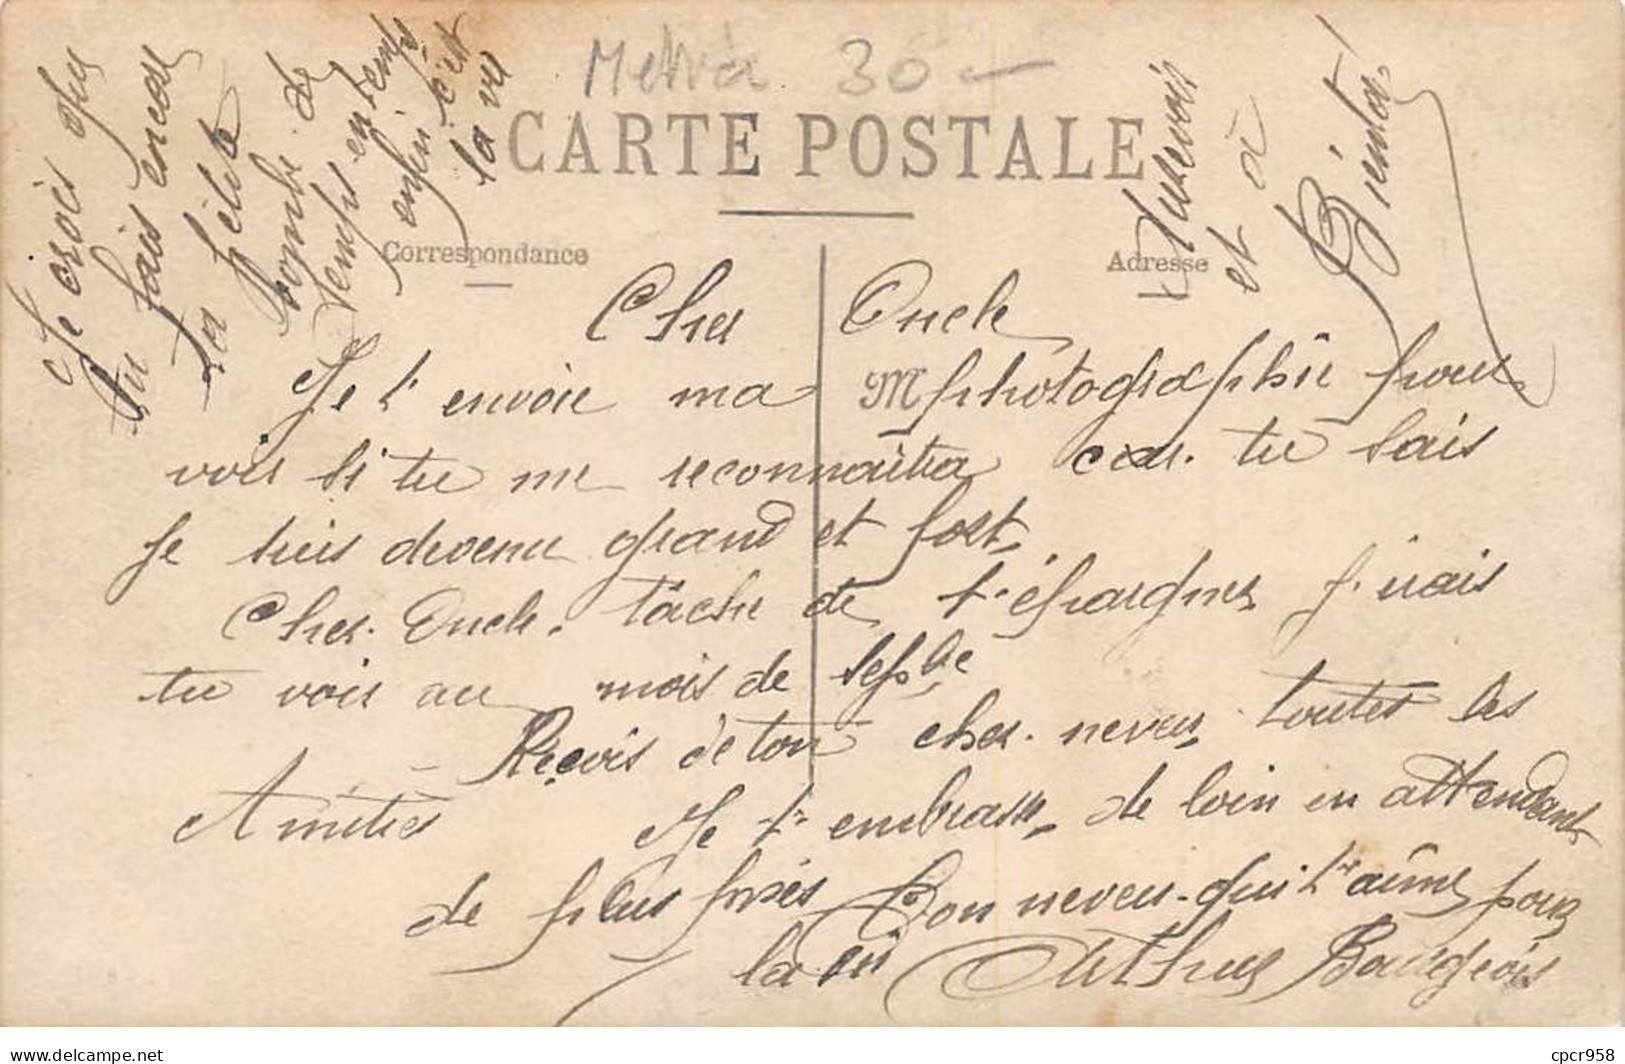 30 -
CARTE POSTALE
Correspondance
Adresse
M
Je crois que
tu fais encore
la fête
la bombe de
temps en temps
enfin c'est
la vie
Aurevoir
et à
Bientôt
Cher Oncle
Je t'envoie ma photographie pour
voir si tu me reconnaitra car tu sais
je suis devenu grand et fort.
Cher Oncle. tâche de t'épargner j'irais
tu voir au mois de Sepbre
Reçois de ton cher neveu toutes les
Amitiés
Je t'embrasse de loin en attendant
de plus près Ton neveu qui t'aime pour
la vie Arthur Bourgeois
cpcr958